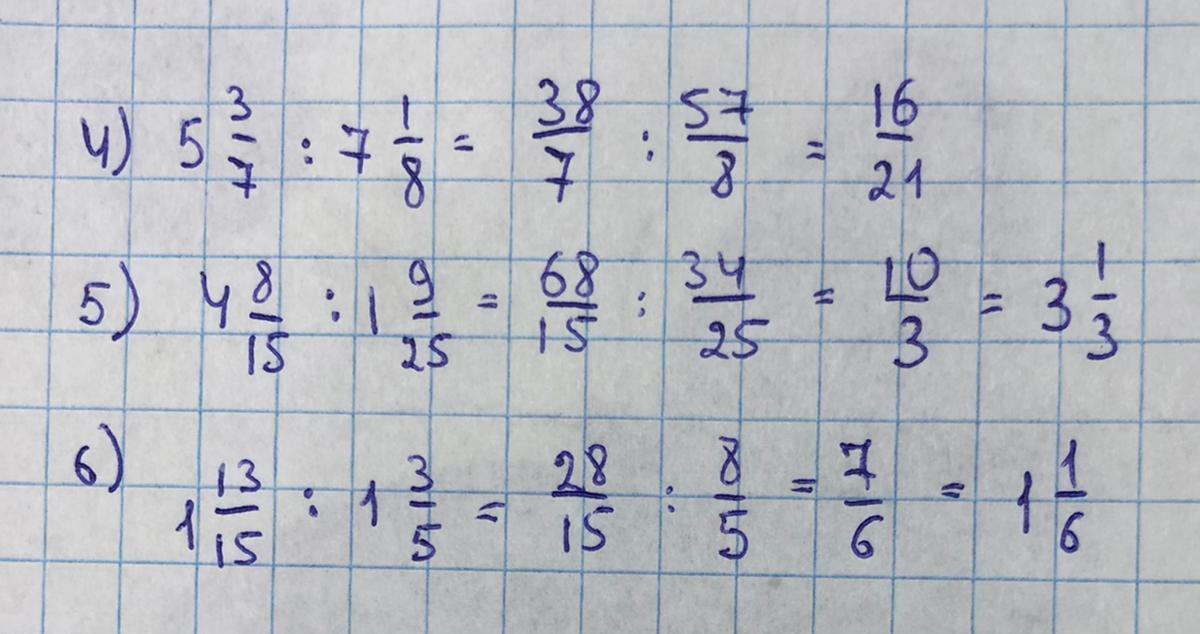 4) 5 3/7 : 7 1/8 = 38/7 : 57/8 = 16/21
5) 4 8/15 : 1 9/25 = 68/15 : 34/25 = 10/3 = 3 1/3
6) 1 13/15 : 1 3/5 = 28/15 : 8/5 = 7/6 = 1 1/6